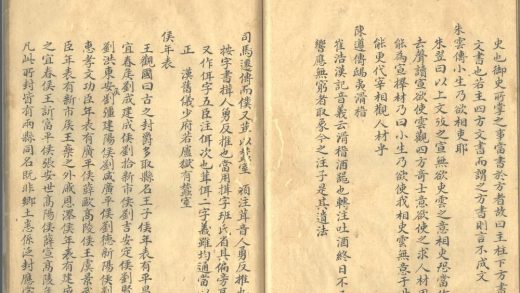 史也御史所掌之事當書於方者故曰主柱下方書
文書也若主四方文書而謂之方書則言不成文
朱雲傳小生乃欲相吏耶
朱翌曰以上文攷之宣無欲吏雲之意相吏恐當作
去聲讀宣欲使雲觀四方奇士意欲使之求人材用
能為宣擇材乃曰小生乃欲使我相吏雲無意子此
能更代宰相觀人材乎
陳遵傳鴟夷滑稽
崔浩漢記音義云滑稽酒器也轉注吐酒終日不
響應無窮者取象今之注子是其遺法
司馬遷傳而僕又茸以蠶室 顏注茸音人勇反推也
按字書揖人勇反推也當用揖字班氏省其偏旁
又作佴字五臣注佴次也茸佴二字義雖均通當以
正 漢舊儀少府若盧獄有蠶室
侯年表
王觀國曰古之封爵多取縣名王子侯年表有平昌
宜春侯劉成建成侯劉拾新市侯劉吉安定侯劉賢
劉洪東安劉彊建陽侯劉咸廣平侯劉德新陽侯劉
惠孝文功臣年表有廣平侯薛歐高陵侯王虞景武
臣年表有新市侯王棄之外戚恩澤侯年表有建成
之宜春侯王訢富平侯張安世高陽侯薛宣高陵
凡此所封皆有兩縣同名既非鄉土惠係泛封應字